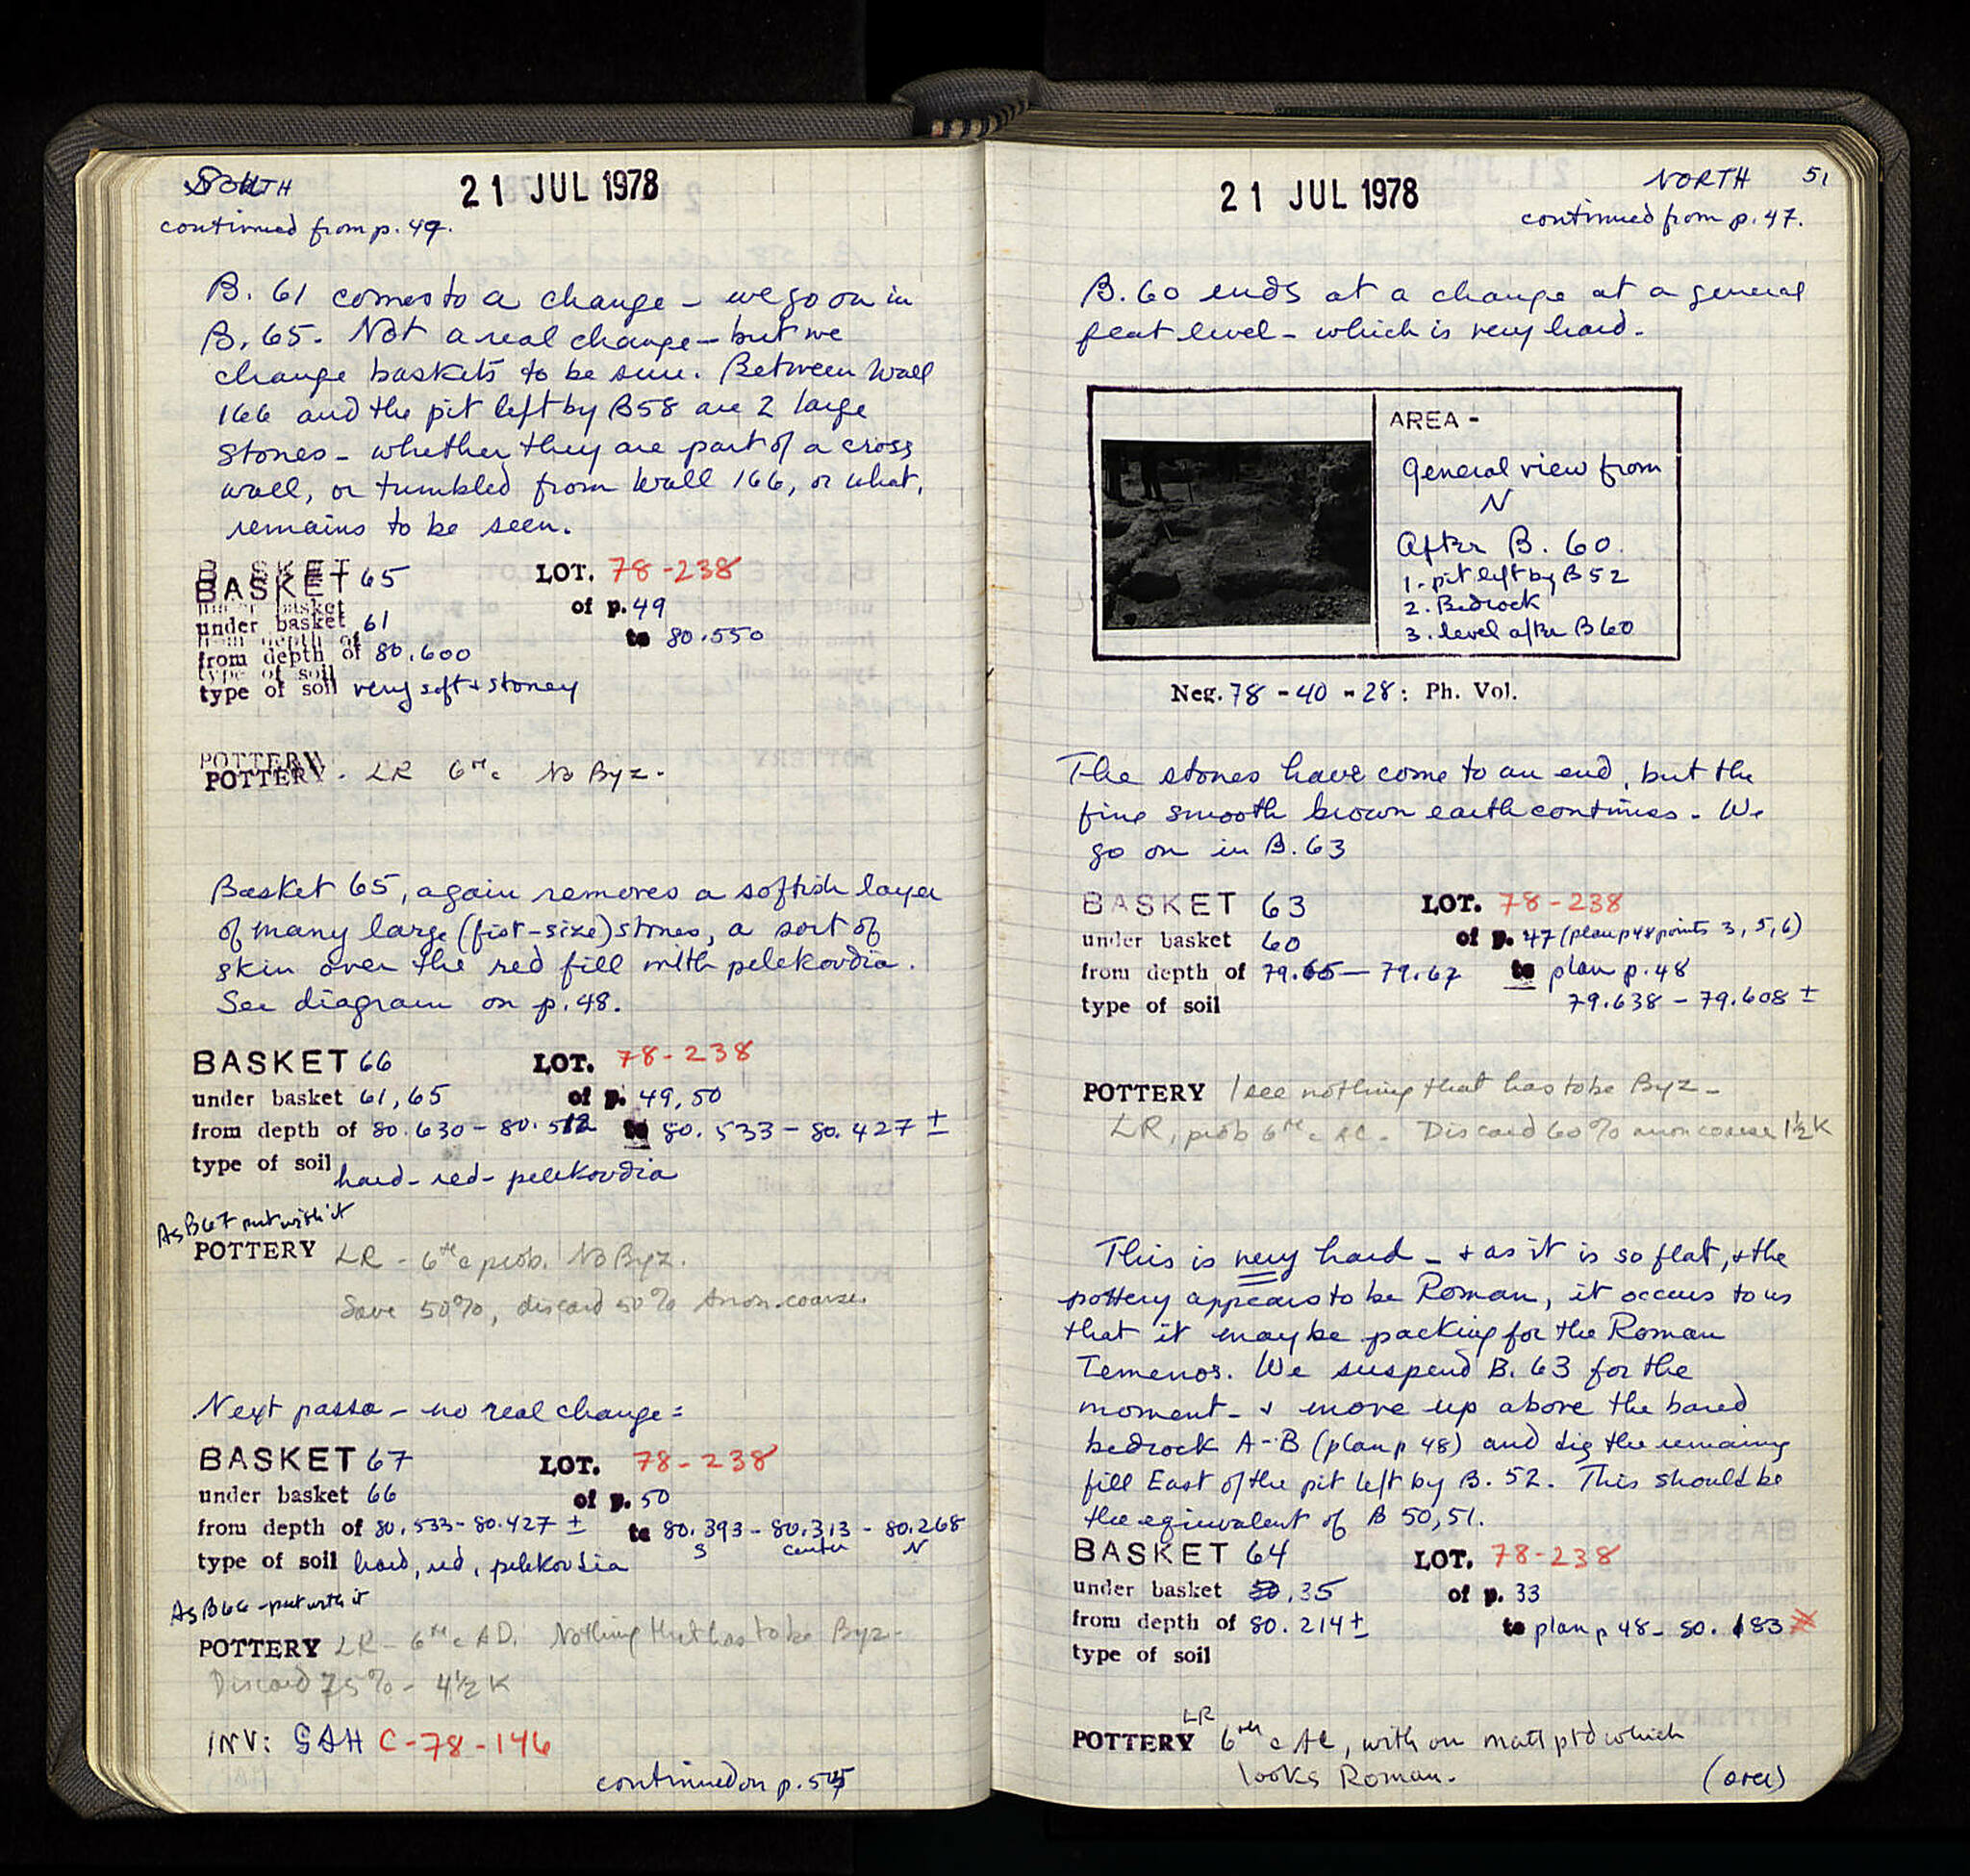 SOUTH
21 JUL 1978
continued from p. 49.
B. 61 comes to a change - we go on in
B. 65. Not a real change - but we
change baskets to be sure. Between Wall
166 and the pit left by B58 are 2 large
stones - whether they are part of a cross
wall, or tumbled from Wall 166, or what,
remains to be seen.
BASKET 65 LOT. 78-238
under basket 61 of p. 49
from depth of 80.600 to 80.550
type of soil very soft + stoney
POTTERY. LR 6th c No Byz.
Basket 65, again removes a softish layer
of many large (fist-size) stones, a sort of
skin over the red fill with pelekoudia.
See diagram on p. 48.
BASKET 66 LOT. 78-238
under basket 61, 65 of p. 49, 50
from depth of 80.630 - 80.512 to 80.533 - 80.427 ±
type of soil hard - red - pelekoudia
As B67 put with it
POTTERY LR - 6th c prob. No Byz.
Save 50%, discard 50% anon. coarse.
Next passa - no real change =
BASKET 67 LOT. 78-238
under basket 66 of p. 50
from depth of 80.533 - 80.427 ± to 80.393 - 80.313 - 80.268
S center N
type of soil hard, red, pelekoudia
As B66 - put with it
POTTERY LR - 6th c AD. Nothing that has to be Byz -
Discard 75% - 4½ K
INV: C-78-146
continued on p.
21 JUL 1978
NORTH 51
continued from p. 47.
B. 60 ends at a change at a general
flat level - which is very hard.
AREA -
General view from
N
After B. 60.
1. pit left by B52
2. Bedrock
3. level after B60
Neg. 78 - 40 - 28: Ph. Vol.
The stones have come to an end, but the
fine smooth brown earth continues. We
go on in B. 63
BASKET 63 LOT. 78-238
under basket 60 of p. 47 (plan p48 points 3, 5, 6)
from depth of 79.65 - 79.67 to plan p. 48
type of soil 79.638 - 79.608 ±
POTTERY I see nothing that has to be Byz -
LR, prob 6th c AC. Discard 60% anon coarse 1½ K
This is very hard - + as it is so flat, + the
pottery appears to be Roman, it occurs to us
that it may be packing for the Roman
Temenos. We suspend B. 63 for the
moment - + move up above the bared
bedrock A-B (plan p 48) and dig the remaining
fill East of the pit left by B. 52. This should be
the equivalent of B 50, 51.
BASKET 64 LOT. 78-238
under basket 35 of p. 33
from depth of 80.214 ± to plan p 48 - 80.183
type of soil
LR
POTTERY 6th c AC, with on matt ptd which
looks Roman.
(over)